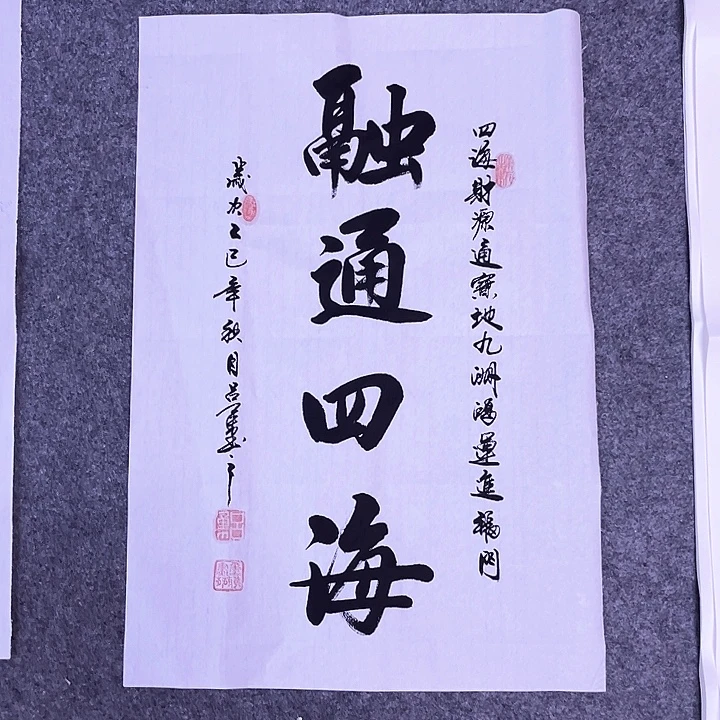 四海财源通寶地九洲鴻運進福門
融通四海
歲次乙巳年秋月吕軍